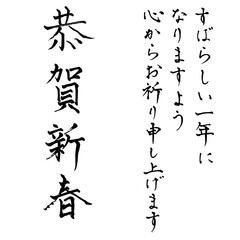 すばらしい一年に
なりますよう
心からお祈り申し上げます
恭賀新春